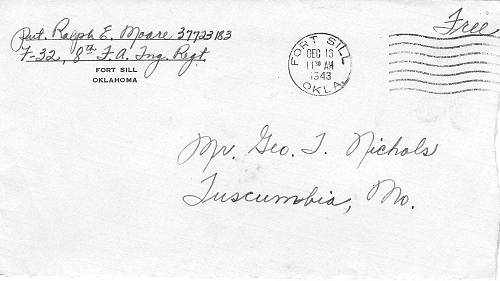 Pvt. Ralph E. Moore 37723183
F-32, 8th F.A. Tng. Regt.
FORT SILL
OKLAHOMA
FORT SILL
DEC 13
11 30 AM
1943
OKLA.
Free
Mr. Geo. T. Nichols
Tuscumbia, Mo.